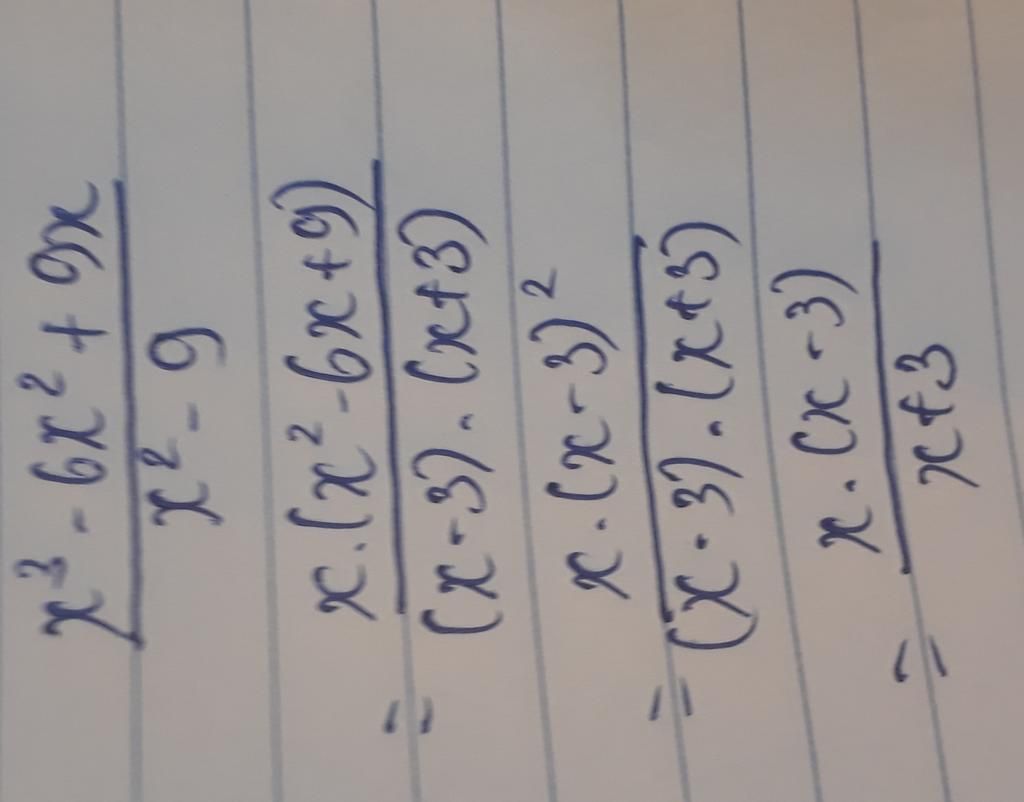 x³ - 6x² + 9x
x² - 9
= x.(x² - 6x + 9)
(x - 3) . (x + 3)
= x . (x - 3)²
(x - 3) . (x + 3)
= x . (x - 3)
x + 3